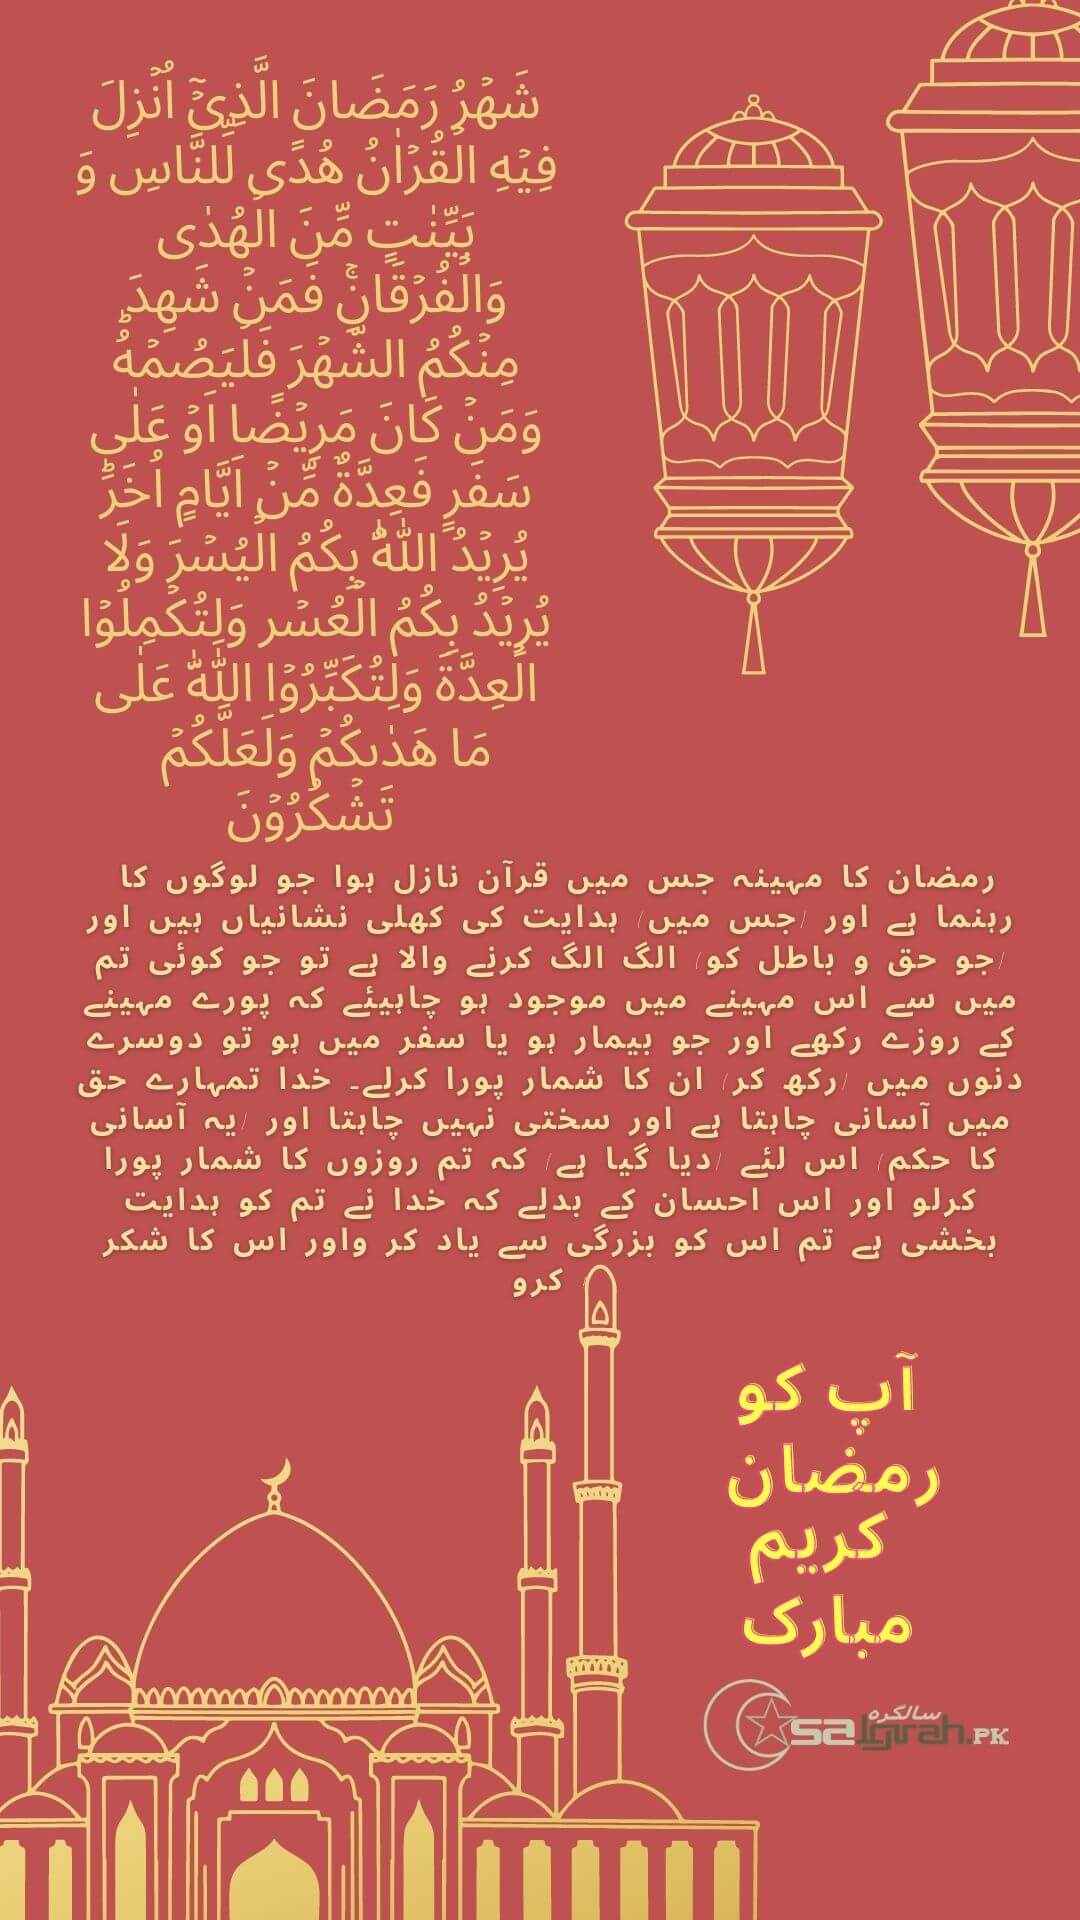 شَهۡرُ رَمَضَانَ الَّذِىۡٓ اُنۡزِلَ
فِيۡهِ الۡقُرۡاٰنُ هُدًى لِّلنَّاسِ وَ
بَيِّنٰتٍ مِّنَ الۡهُدٰى
وَالۡفُرۡقَانِۚ فَمَنۡ شَهِدَ
مِنۡكُمُ الشَّهۡرَ فَلۡيَصُمۡهُؕ
وَمَنۡ کَانَ مَرِيۡضًا اَوۡ عَلٰى
سَفَرٍ فَعِدَّةٌ مِّنۡ اَيَّامٍ اُخَرَؕ
يُرِيۡدُ اللّٰهُ بِکُمُ الۡيُسۡرَ وَلَا
يُرِيۡدُ بِکُمُ الۡعُسۡر وَلِتُکۡمِلُوۡا
الۡعِدَّةَ وَلِتُکَبِّرُوۡا اللّٰهَ عَلٰى
مَا هَدٰٮكُمۡ وَلَعَلَّکُمۡ
تَشۡكُرُوۡنَ
رمضان کا مہینہ جس میں قرآن نازل ہوا جو لوگوں کا
رہنما ہے اور (جس میں) ہدایت کی کھلی نشانیاں ہیں اور
(جو حق و باطل کو) الگ الگ کرنے والا ہے تو جو کوئی تم
میں سے اس مہینے میں موجود ہو چاہیئے کہ پورے مہینے
کے روزے رکھے اور جو بیمار ہو یا سفر میں ہو تو دوسرے
دنوں میں (رکھ کر) ان کا شمار پورا کرلے۔ خدا تمہارے حق
میں آسانی چاہتا ہے اور سختی نہیں چاہتا اور (یہ آسانی
کا حکم) اس لئے (دیا گیا ہے) کہ تم روزوں کا شمار پورا
کرلو اور اس احسان کے بدلے کہ خدا نے تم کو ہدایت
بخشی ہے تم اس کو بزرگی سے یاد کر واور اس کا شکر
کرو
آپ کو
رمضان
کریم
مبارک
سالگرہ
salgrah.PK